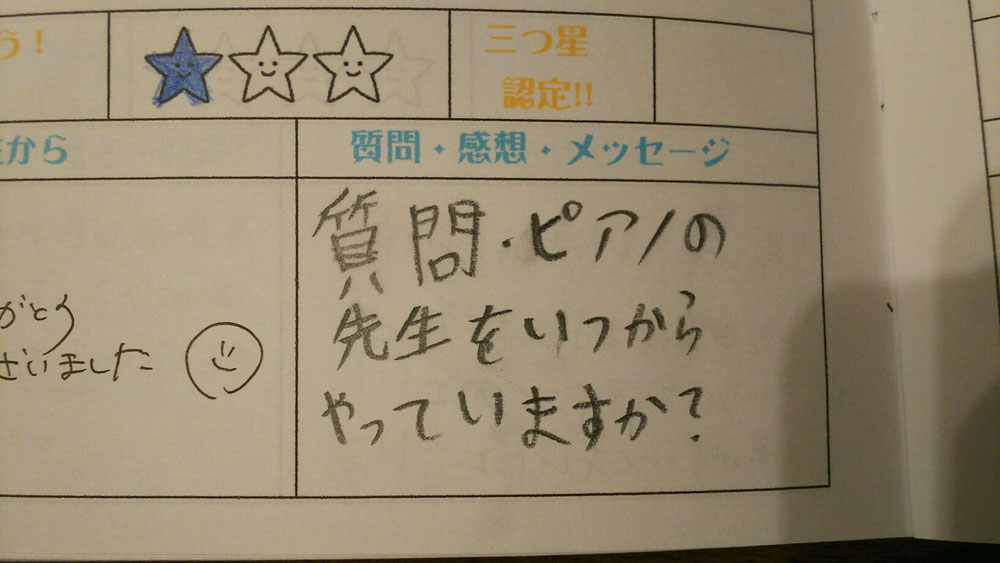 う！
三つ星
認定!!
から
質問・感想・メッセージ
質問・ピアノの
先生をいつから
やっていますか？
がとう
ざいました